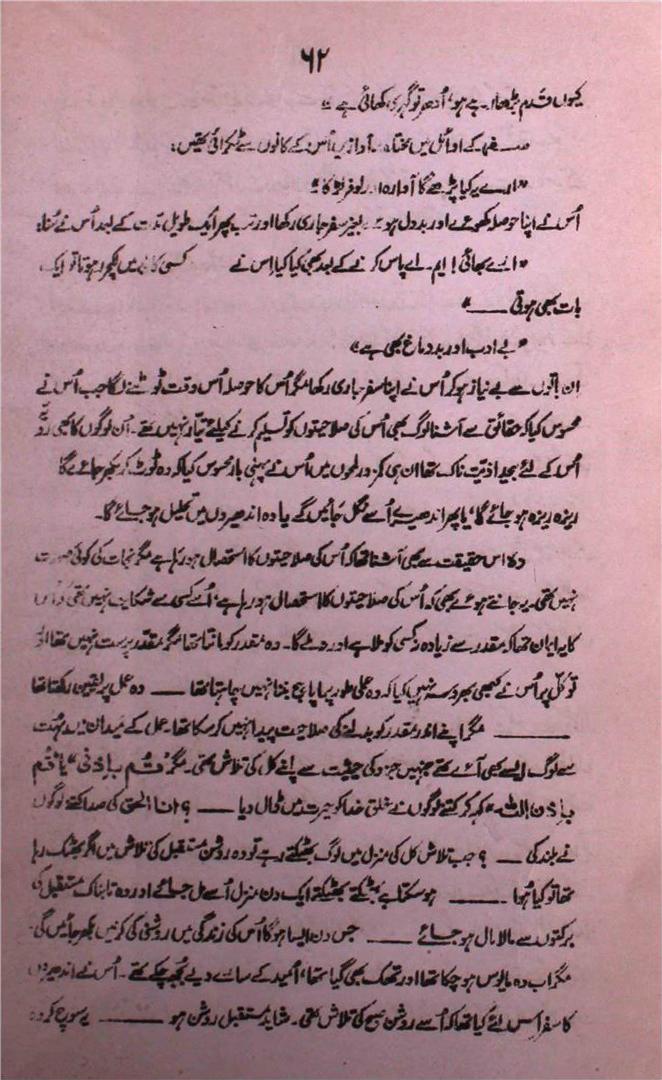 ۶۲
کیوں قدم بڑھا رہے ہو، اُدھر تو گہری کھائی ہے"
سفر کے اوائل میں مختلف آوازیں اُس کے کانوں سے ٹکرائی تھیں:
"ارے یہ کیا پڑھے گا آوارہ اور لوفر
اُس نے اپنا حوصلہ کھوئے اور بددل ہوئے بغیر سفر جاری رکھا اور تب پھر ایک طویل مدّت کے بعد اُس نے سُنا:
"ارے بھائی! ایم۔ اے پاس کرنے کے بعد بھی کیا کیا اس نے کسی کالج میں لکچرر ہوتا تو ایک
بات بھی ہوتی ——"
"بے ادب اور بددماغ بھی ہے"
ان باتوں سے بے نیاز ہو کر اُس نے اپنا سفر جاری رکھا مگر اُس کا حوصلہ اُس وقت ٹوٹنے لگا جب اُس نے
محسوس کیا کہ حقائق سے آشنا لوگ بھی اُس کی صلاحیتوں کو تسلیم کرنے کیلئے تیار نہیں تھے۔ اُن لوگوں کا یہی رویّہ
اُس کے لئے بیحد اذیّت ناک تھا ان ہی کمزور لمحوں میں اُس نے پہلی بار محسوس کیا کہ وہ ٹوٹ کر بکھر جائے گا
ریزہ ریزہ ہو جائے گا، یا پھر اندھیرے اُسے نگل جائیں گے یا وہ اندھیروں میں تحلیل ہو جائے گا۔
وہ اس حقیقت سے بھی آشنا تھا کہ اُس کی صلاحیتوں کا استحصال ہو رہا ہے مگر نجات کی کوئی صورت
نہیں تھی۔ یہ جانتے ہوئے بھی کہ اُس کی صلاحیتوں کا استحصال ہو رہا ہے، اُسے کسی سے شکایت نہیں تھی کہ اُس
کا یہ ایمان تھا کہ مقدر سے زیادہ نہ کسی کو ملا ہے اور نہ ملے گا۔ وہ مقدر کو مانتا تھا مگر مقدّر پرست نہیں تھا اور
توکّل پر اُس نے کبھی بھروسہ نہیں کیا کہ وہ عملی طور پر اپاہج بننا نہیں چاہتا تھا —— وہ عمل پر یقین رکھتا تھا
—— مگر اپنے اندر مقدر کو بدلنے کی صلاحیت پیدا نہیں کر سکا تھا۔ عمل کے میدان میں بہت
سے لوگ ایسے بھی آئے تھے جنہیں جزو کی حیثیت سے اپنے کُل کی تلاش تھی۔ مگر "قُم باِذنی" یا "قُم
باِذن اللہ" کہہ کر کتنے لوگوں نے خلقِ خدا کو حیرت میں ڈال دیا —— ؟ انا الحق کی صدا کتنے لوگوں
نے بلند کی —— ؟ جب تلاشِ کُل کی منزل میں لوگ بھٹکتے رہے تو وہ روشن مستقبل کی تلاش میں اگر بھٹک رہا
تھا تو کیا ہُوا —— ہو سکتا ہے بھٹکتے بھٹکتے ایک دن منزل اُسے مل جائے اور وہ تابناک مستقبل کی
برکتوں سے مالا مال ہو جائے —— جس دن ایسا ہوگا اُس کی زندگی میں روشنی کی کرنیں بکھر جائیں گی۔
مگر اب وہ مایوس ہو چکا تھا اور تھک بھی گیا تھا، اُمید کے سارے دیے بُجھ چکے تھے۔ اُس نے اندھیروں
کا سفر اس لئے کیا تھا کہ اُسے روشن صبح کی تلاش تھی۔ شاید مستقبل روشن ہو —— یہ سوچ کر وہ